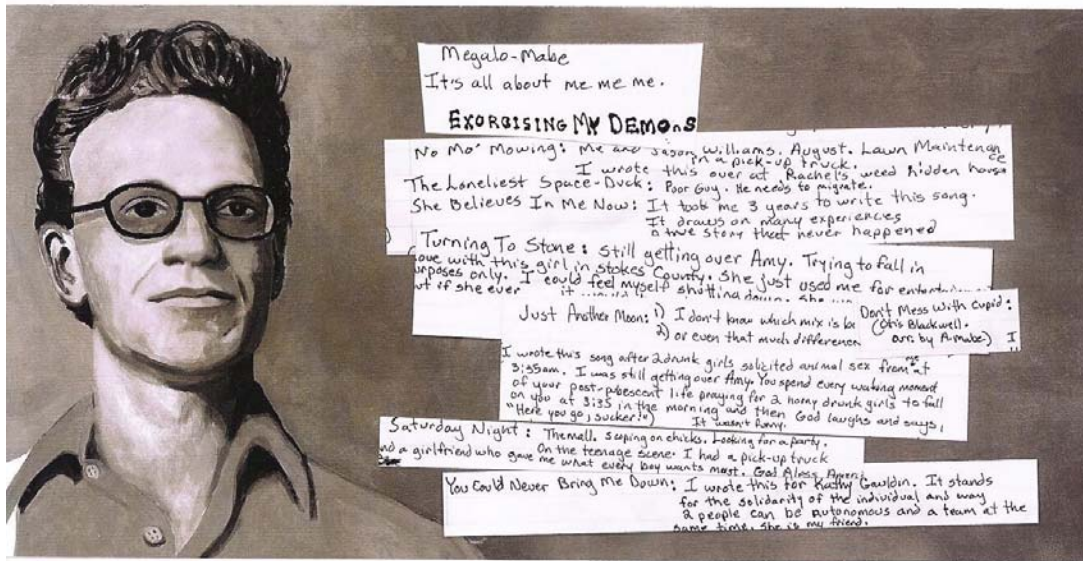 Megalo-Mabe
It's all about me me me.
EXORCISING MY DEMONS
No Mo' Mowing: Me and Jason Williams. August. Lawn Maintenance
in a pick-up truck.
I wrote this over at Rachel's weed hidden house
The Loneliest Space-Duck: Poor Guy. He needs to migrate.
She Believes In Me Now: It took me 3 years to write this song.
It draws on many experiences
a true story that never happened
Turning To Stone: Still getting over Amy. Trying to fall in
love with this girl in Stokes County. She just used me for
purposes only. I could feel myself shutting down. She
but if she ever
Just Another Moon: 1) I don't know which mix is
2) or even that much difference
Don't Mess With Cupid:
(Otis Blackwell.
arr. by A. Mabe)
I wrote this song after 2 drunk girls solicited animal sex from me at
3:35am. I was still getting over Amy. You spend every waking moment
of your post-pubescent life praying for 2 horny drunk girls to fall
on you at 3:35 in the morning and then God laughs and says,
"Here you go, sucker!") It wasn't funny.
Saturday Night: The mall. Scoping on chicks. Looking for a party.
On the teenage scene. I had a pick-up truck
and a girlfriend who gave me what every boy wants most. God Bless
You Could Never Bring Me Down: I wrote this for Kathy Gauldin. It stands
for the solidarity of the individual and way
2 people can be autonomous and a team at the
same time. She is my friend.